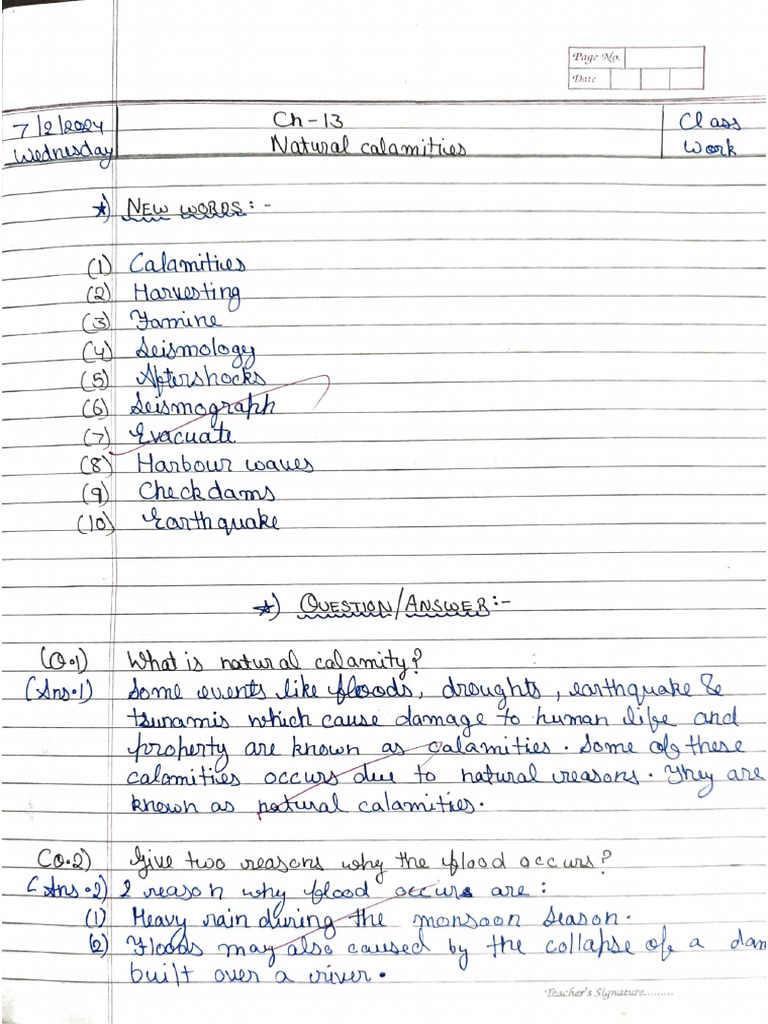 Page No.
Date
7/2/2024 Ch-13 Class
Wednesday Natural calamities Work
*) NEW WORDS:-
(1) Calamities
(2) Harvesting
(3) Famine
(4) Seismology
(5) Aftershocks
(6) Seismograph
(7) Evacuate
(8) Harbour waves
(9) Check dams
(10) Earthquake
*) QUESTION/ANSWER:-
(Q.1) What is natural calamity?
(Ans.1) Some events like floods, droughts, earthquake &
tsunamis which cause damage to human life and
property are known as calamities. Some of these
calamities occurs due to natural reasons. They are
known as natural calamities.
(Q.2) Give two reasons why the flood occurs?
(Ans.2) 2 reason why flood occurs are:
(1) Heavy rain during the monsoon season.
(2) Floods may also caused by the collapse of a dam
built over a river.
Teacher's Signature.........